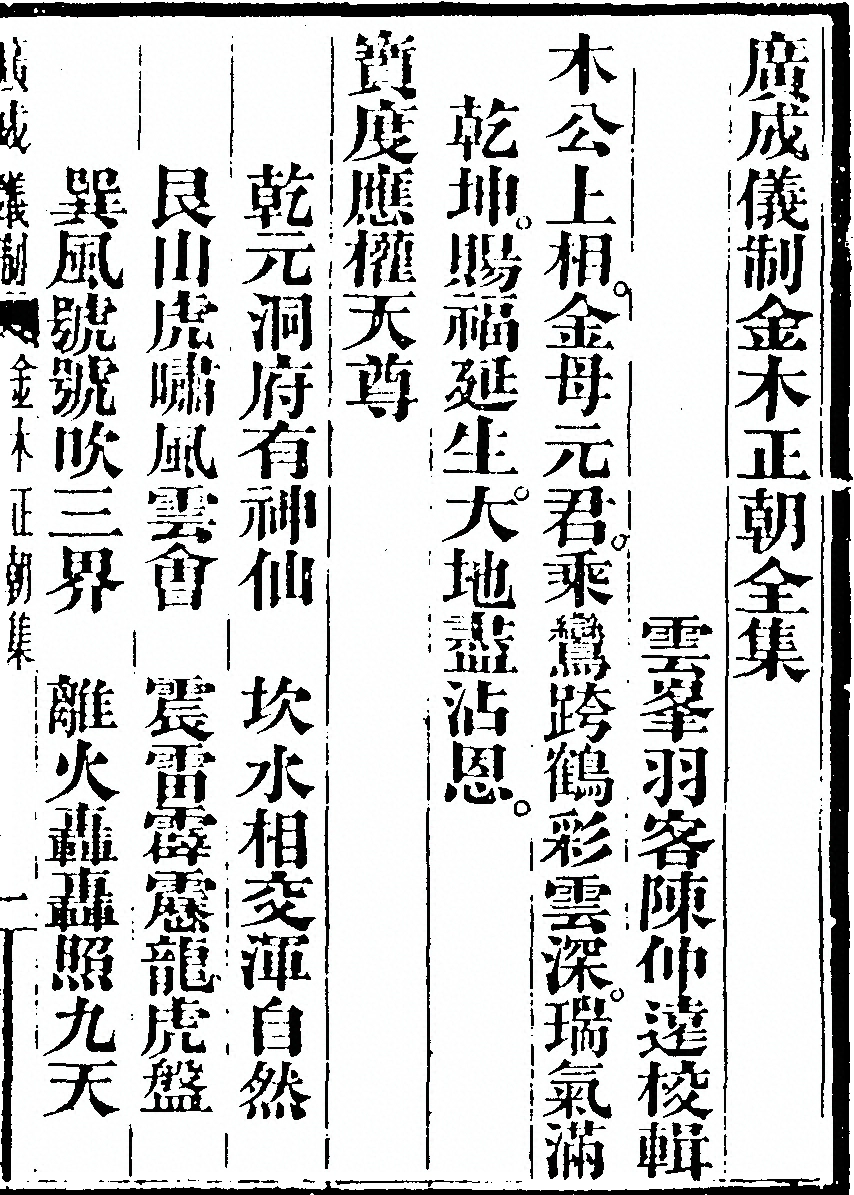 廣成儀制金木正朝全集
雲峯羽客陳仲遠校輯
木公上相。金母元君。乘鸞跨鶴彩雲深。瑞氣滿
乾坤。賜福延生。大地盡沾恩。
寶度應權天尊
乾元洞府有神仙　坎水相交渾自然
艮山虎嘯風雲會　震雷霹靂龍虎盤
巽風號號吹三界　離火轟轟照九天
廣成儀制 金木正朝集 一